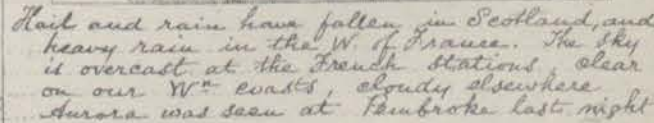 Hail and rain have fallen in Scotland, and
heavy rain in the W. of France. The sky
is overcast at the French stations, clear
on our Wn coasts, cloudy elsewhere
Aurora was seen at Pembroke last night